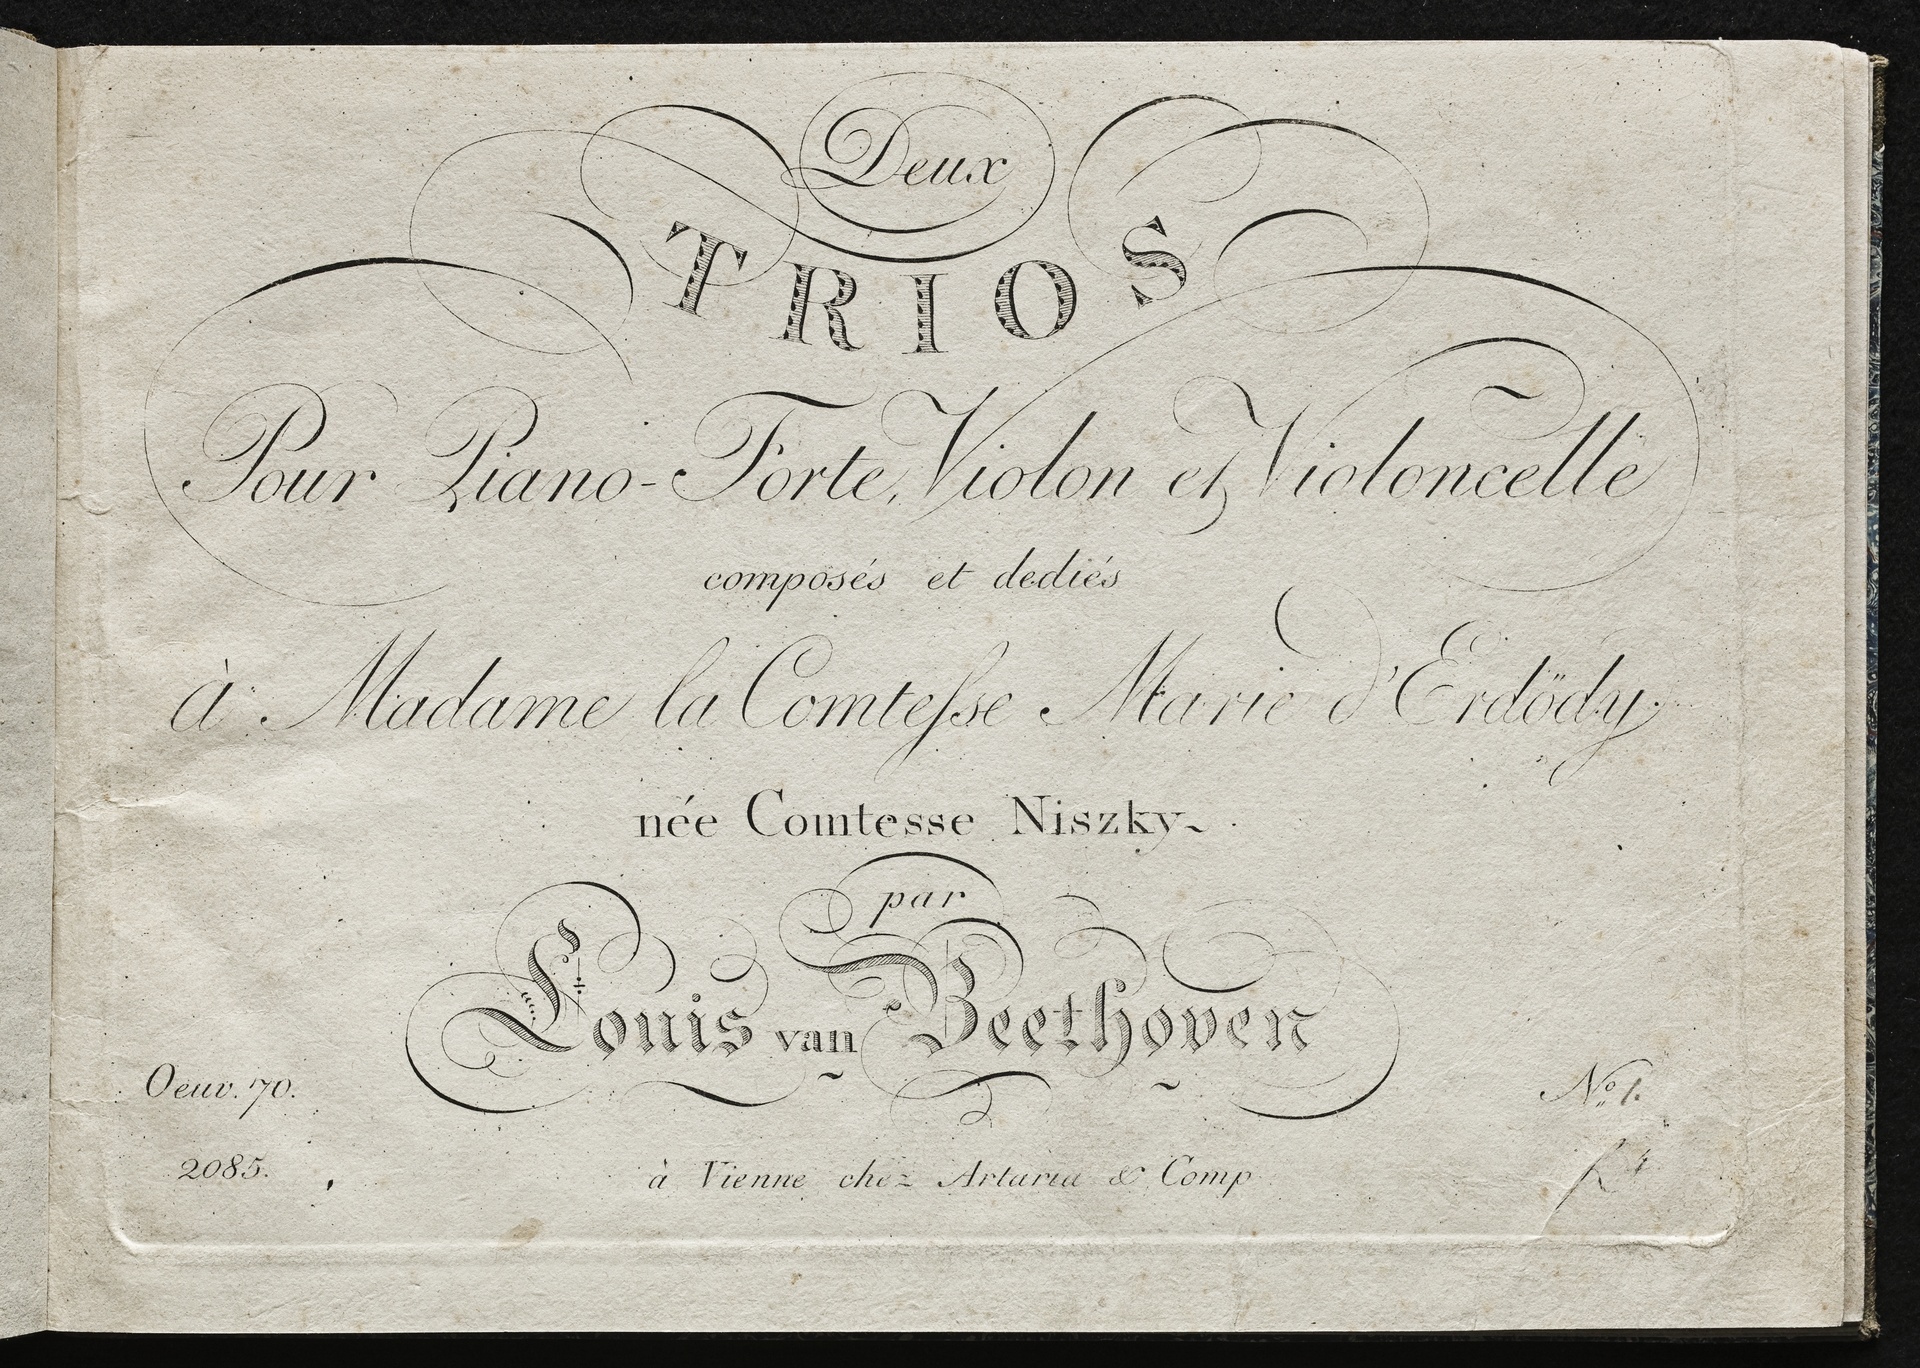 Deux
TRIOS
Pour Piano-Forte, Violon et Violoncelle
composés et dediés
à Madame la Comtesse Marie d'Erdödy
née Comtesse Niszky
par
Louis van Beethoven
Oeuv. 70.
No. 1.
2085.
à Vienne chez Artaria & Comp